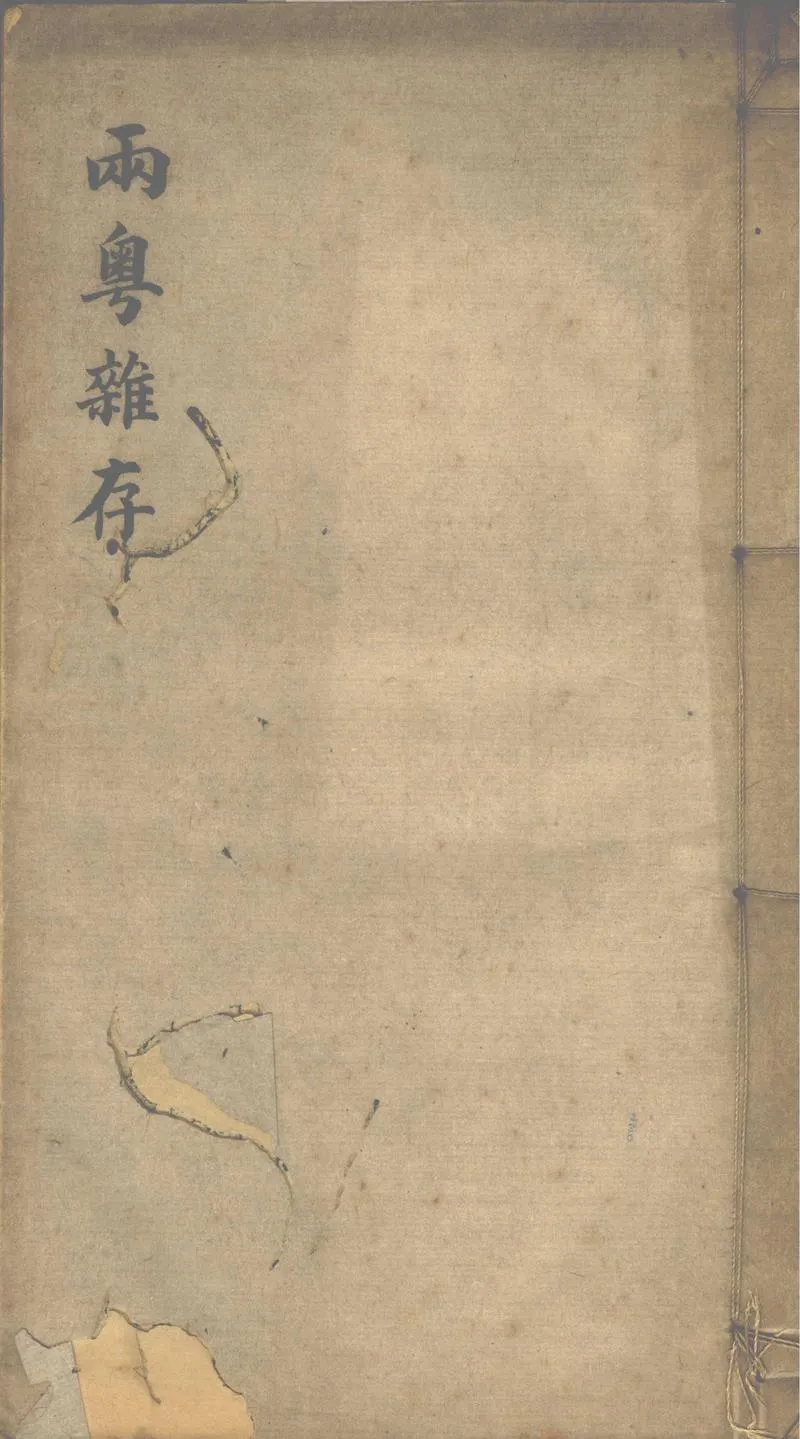 兩粵雜存